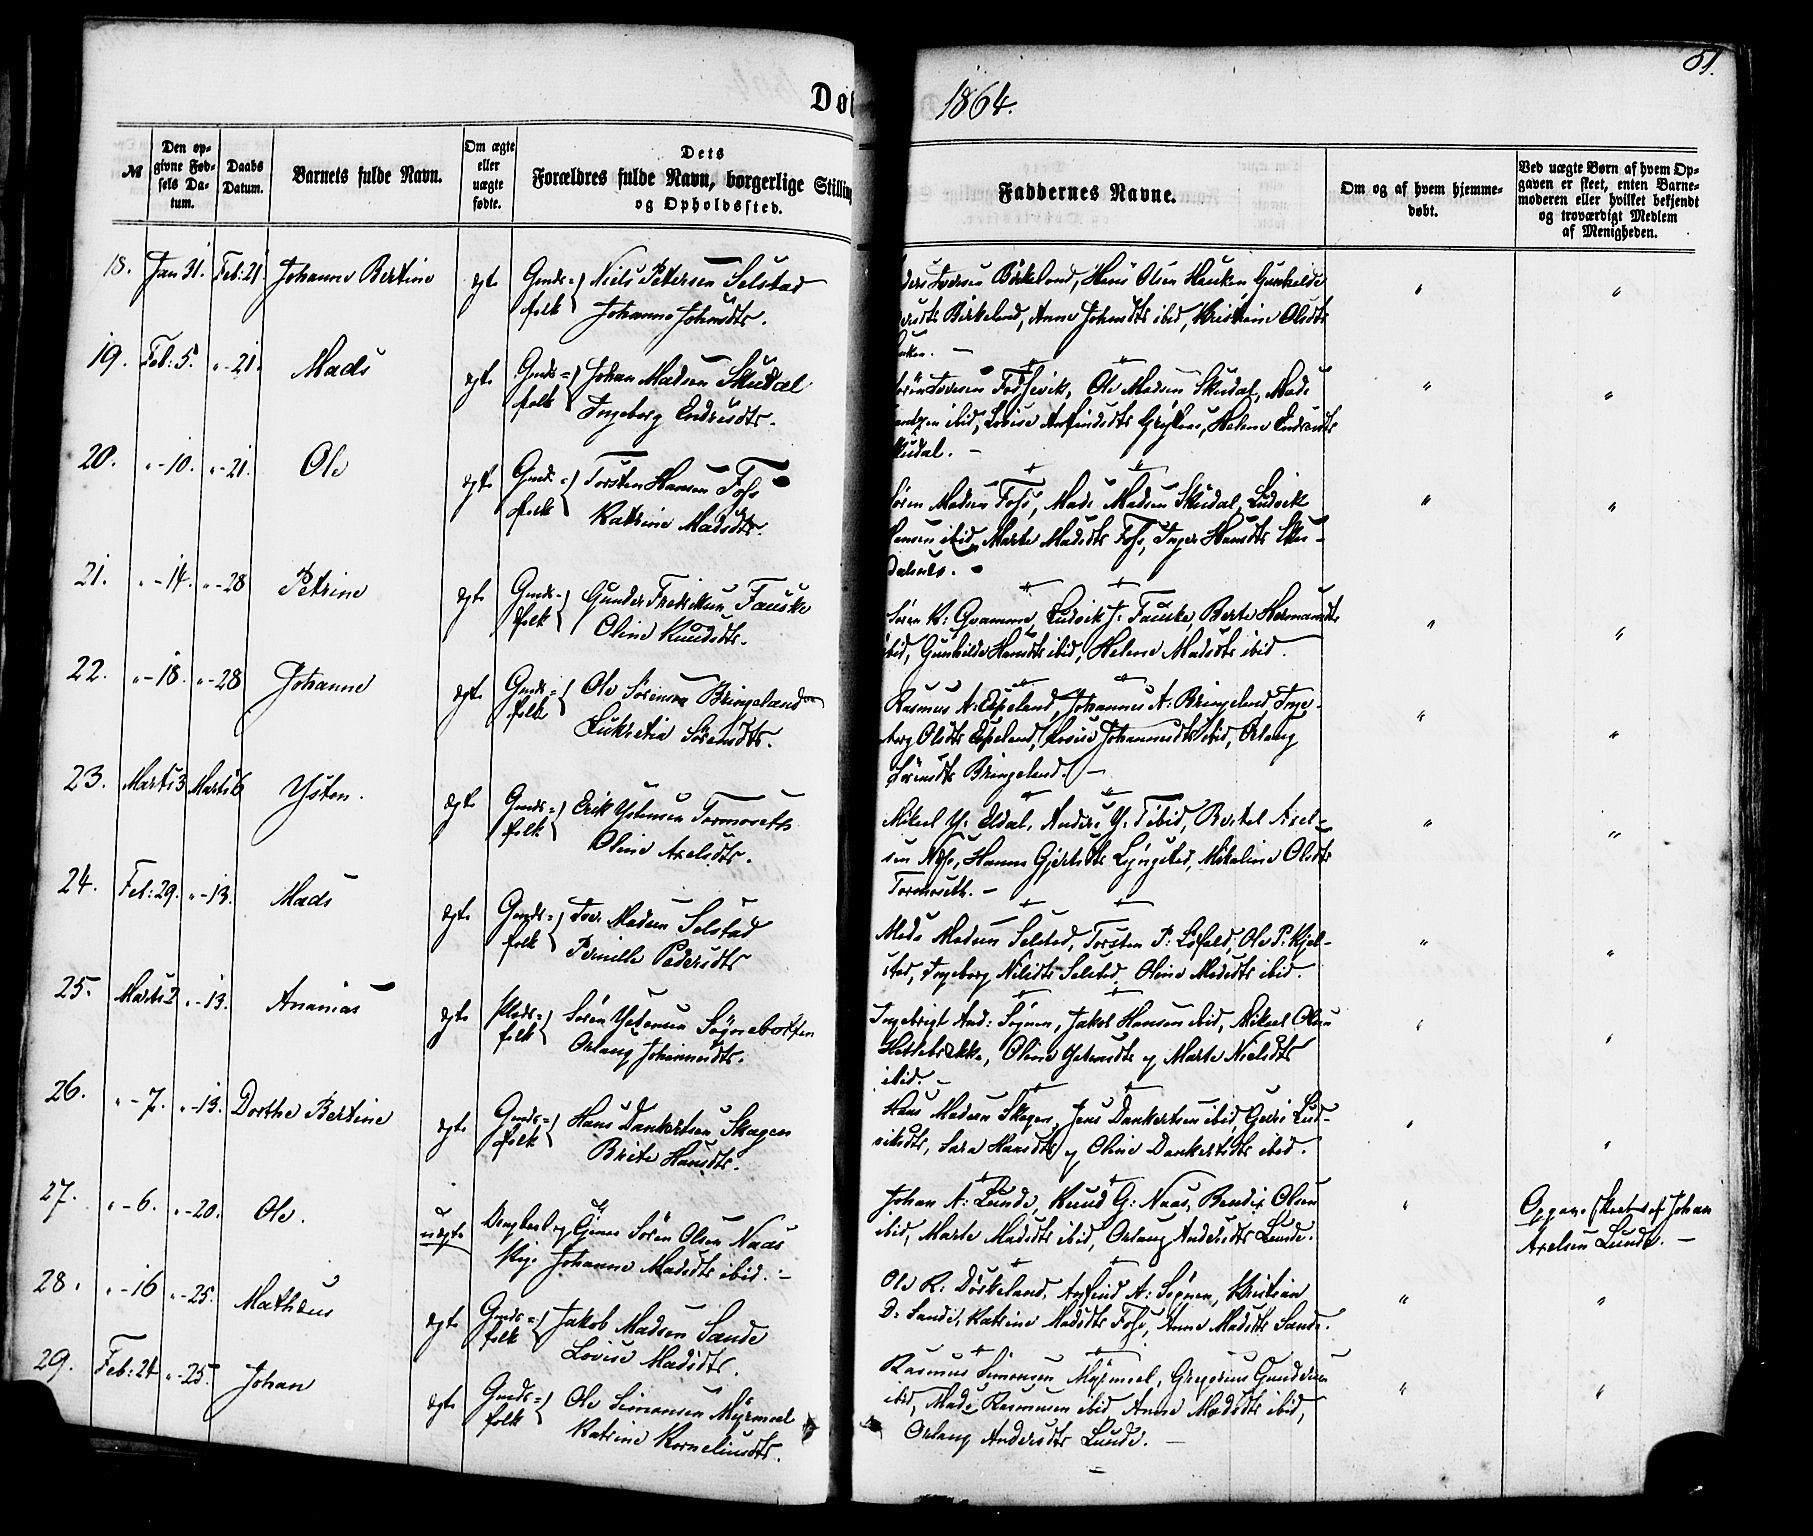 Døb
1864.
51.
№
Den opgivne Fødsels Datum.
Daabs Datum.
Barnets fulde Navn.
Om ægte eller uægte fødte.
Dets Forældres fulde Navn, borgerlige Stilling og Opholdssted.
Faddernes Navne.
Om og af hvem hjemmedøbt.
Ved uægte Børn af hvem Opgaven er skeet, enten Barnemoderen eller hvilket bekjendt og troværdigt Medlem af Menigheden.
18. Jan 31. Feb: 21 Johanne Bertine ægte Gmds= folk Niels Pettersen Selstad
Johanne Johnsdtr.
Iversen Birkeland, Hans Olsen Hauken Gunhilde
Birkeland, Anne Johnsdtr ibid, Kristine Olsdtr
" "
19. Feb: 5. "-21. Mads ægte Gmds= folk Johan Madsen Skudal
Ingeborg Endresdtr.
Ole Madsen Skudal, Mads
ibid, Lovise Anfindsdtr Helene Endresdtr
Skudal. -
" "
20. "-10. "-21. Ole ægte Gmds= folk Torsten Hansen Foss
Katrine Madsdtr.
Søren Madsen Foss, Mads Madsen Skudal, Ludvik
Hansen ibid, Marte Madsdtr Foss, Inger Hansdtr Sku-
dalnes.
" "
21. "-14. "-28 Petrine ægte Gmds= folk Gunder Frederiksen Fauske
Oline Knudsdtr.
Søren K: Qvamme, Ludvik J: Fauske, Berte Hermansdtr
ibid, Gunhilde Hansdtr ibid, Helene Madsdtr ibid.
" "
22. "-18. "-28 Johanne ægte Gmds= folk Ole Sørensen Bringeland
Lukretia Sørensdtr.
Rasmus A: Espeland, Johannes A: Bringeland Inge-
borg Olsdtr Espeland, Lovise Johannesdtr ibid, Orlaug
Sørensdtr Bringeland. -
" "
23. Marts 3 Marts 6 Ysten. ægte Gmds= folk Erik Ystensen Tormoseth
Oline Axelsdtr.
Mikael Y: Eldal, Anders Y: ibid, Bertel Axel-
sen Hanna Gjertsdtr Lyngstad, Mikaline Olsdtr
Tormoseth. -
" "
24. Feb: 29. "-13. Mads ægte Gmds= folk Iver Madsen Selstad
Pernille Pedersdtr
Mads Madsen Selstad, Torsten P: Løfald, Ole P: Kjel-
stad, Ingeborg Nilsdtr Selstad, Oline Madsdtr ibid.
" "
25. Marts 2 "-13. Ananias ægte Plads= folk Søren Ystensen Sögnebotten
Orlaug Johannesdtr.
Ingebrigt And: Sögnen, Jakob Hansen ibid, Mikael Olsen
Oline Ystensdtr og Marte Nielsdtr
ibid. -
" "
26. "-7. "-13. Dorthe Bertine ægte Gmds= folk Hans Dankertsen Skagen
Brite Hansdtr.
Hans Madsen Skagen, Jens Dankertsen ibid, Lud-
viksdtr, Sara Hansdtr og Oline Dankertsdtr ibid.
" "
27. "-6. "-20. Ole. uægte Ungkarl og Søren Olsen Naas
Pige Johanne Madsdtr ibid. -
Johan A: Lunde, Knud G: Naas, Bendix Olsen
ibid, Marte Madsdtr ibid, Orlaug Andersdtr Lunde.
"
Opgave skeet af Johan
Axelsen Lunde. -
28. "-16 "-25. Matheus ægte Gmds= folk Jakob Madsen Sande
Lovise Madsdtr.
Ole R: Døskeland, Anfind A: Sögnen, Kristian
D: Sande, Katrine Madsdtr Foss, Anne Madsdtr Sande.
" "
29. Feb: 24 "-25. Johan ægte Gmds= folk Ole Simonsen Myrmeel
Katrine Korneliusdtr.
Rasmus Simonsen Myrmeel, Gregorius Gundersen
ibid, Mads Rasmussen ibid Anne Madsdtr ibid,
Orlaug Andersdtr Lunde. -
" "